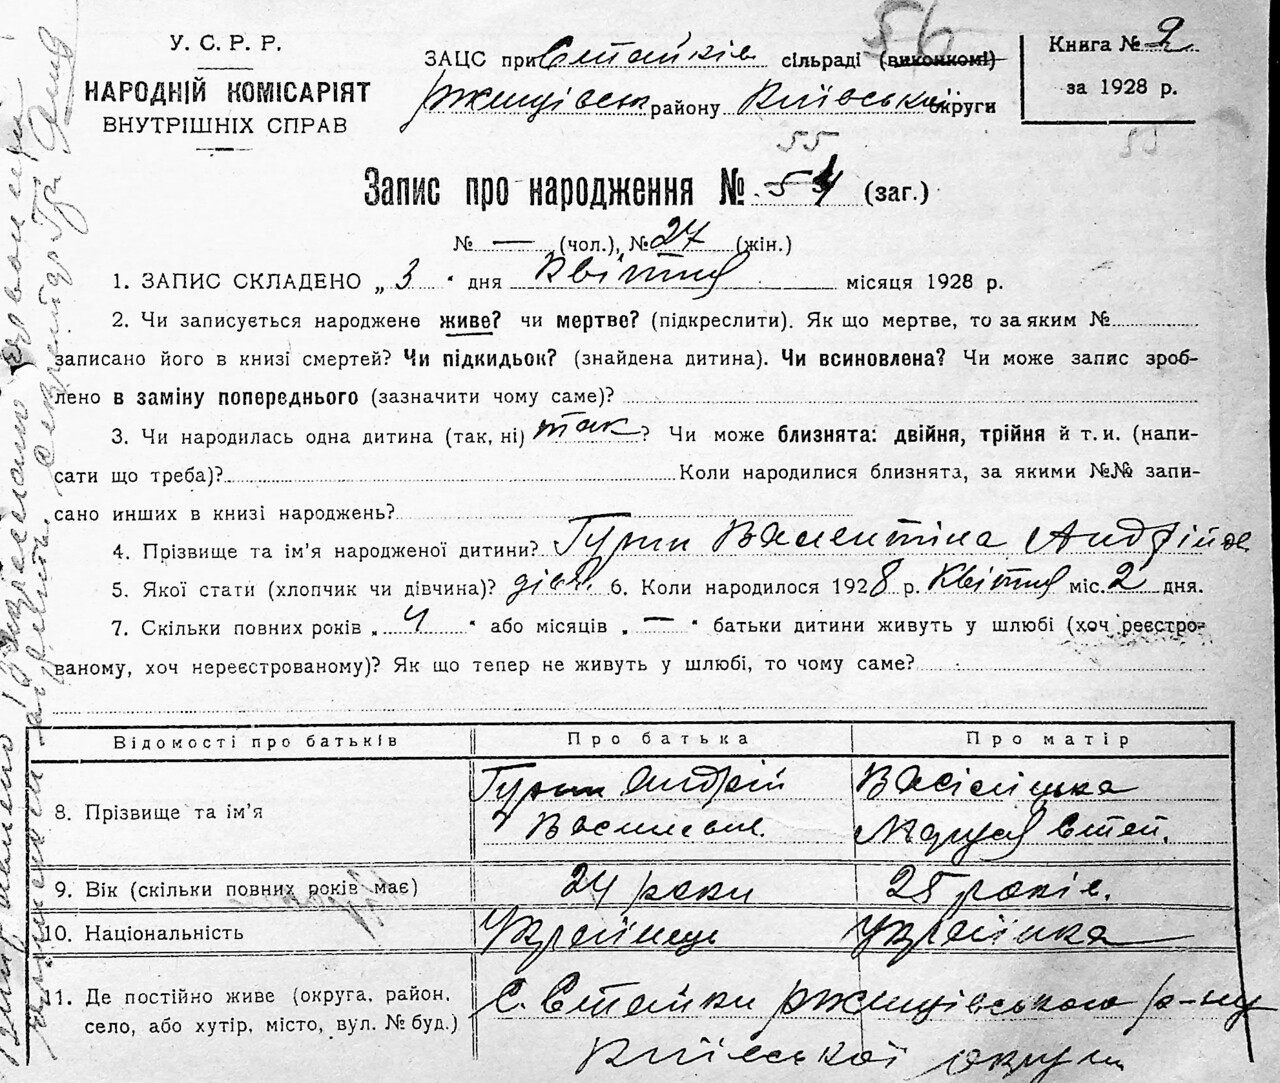 У. С. Р. Р.
НАРОДНІЙ КОМІСАРІЯТ
ВНУТРІШНІХ СПРАВ
56
ЗАЦС при Стайків сільраді (виконкомі)
Ржищівськ району Київської округи
Книга № 2
за 1928 р.
55
55
Запис про народження № 54 (заг.)
№ — (чол.), № 27 (жін.)
1. ЗАПИС СКЛАДЕНО „ 3 " дня Квітня місяця 1928 р.
2. Чи записується народжене живе? чи мертве? (підкреслити). Як що мертве, то за яким №
записано його в книзі смертей? Чи підкидьок? (знайдена дитина). Чи всиновлена? Чи може запис зроб-
лено в заміну попереднього (зазначити чому саме)?
3. Чи народилась одна дитина (так, ні) так? Чи може близнята: двійня, трійня й т. и. (напи-
сати що треба)? Коли народилися близнята, за якими №№ запи-
сано инших в книзі народжень?
4. Прізвище та ім'я народженої дитини? Гурин Валентина Андрійов
5. Якої стати (хлопчик чи дівчина)? дівч. 6. Коли народилося 1928 р. Квітня міс. 2 дня.
7. Скільки повних років „ 4 " або місяців „ — " батьки дитини живуть у шлюбі (хоч реєстро-
ваному, хоч нереєстрованому)? Як що тепер не живуть у шлюбі, то чому саме?
Відомості про батьків Про батька Про матір
8. Прізвище та ім'я Гурин Андрій Васіліцька
Васильов. Маруся Степ.
9. Вік (скільки повних років має) 24 роки 25 років.
10. Національність Українець Українка
11. Де постійно живе (округа, район,
село, або хутір, місто, вул. № буд.)
с. Стайки Ржищівського р-ну
Київської округи